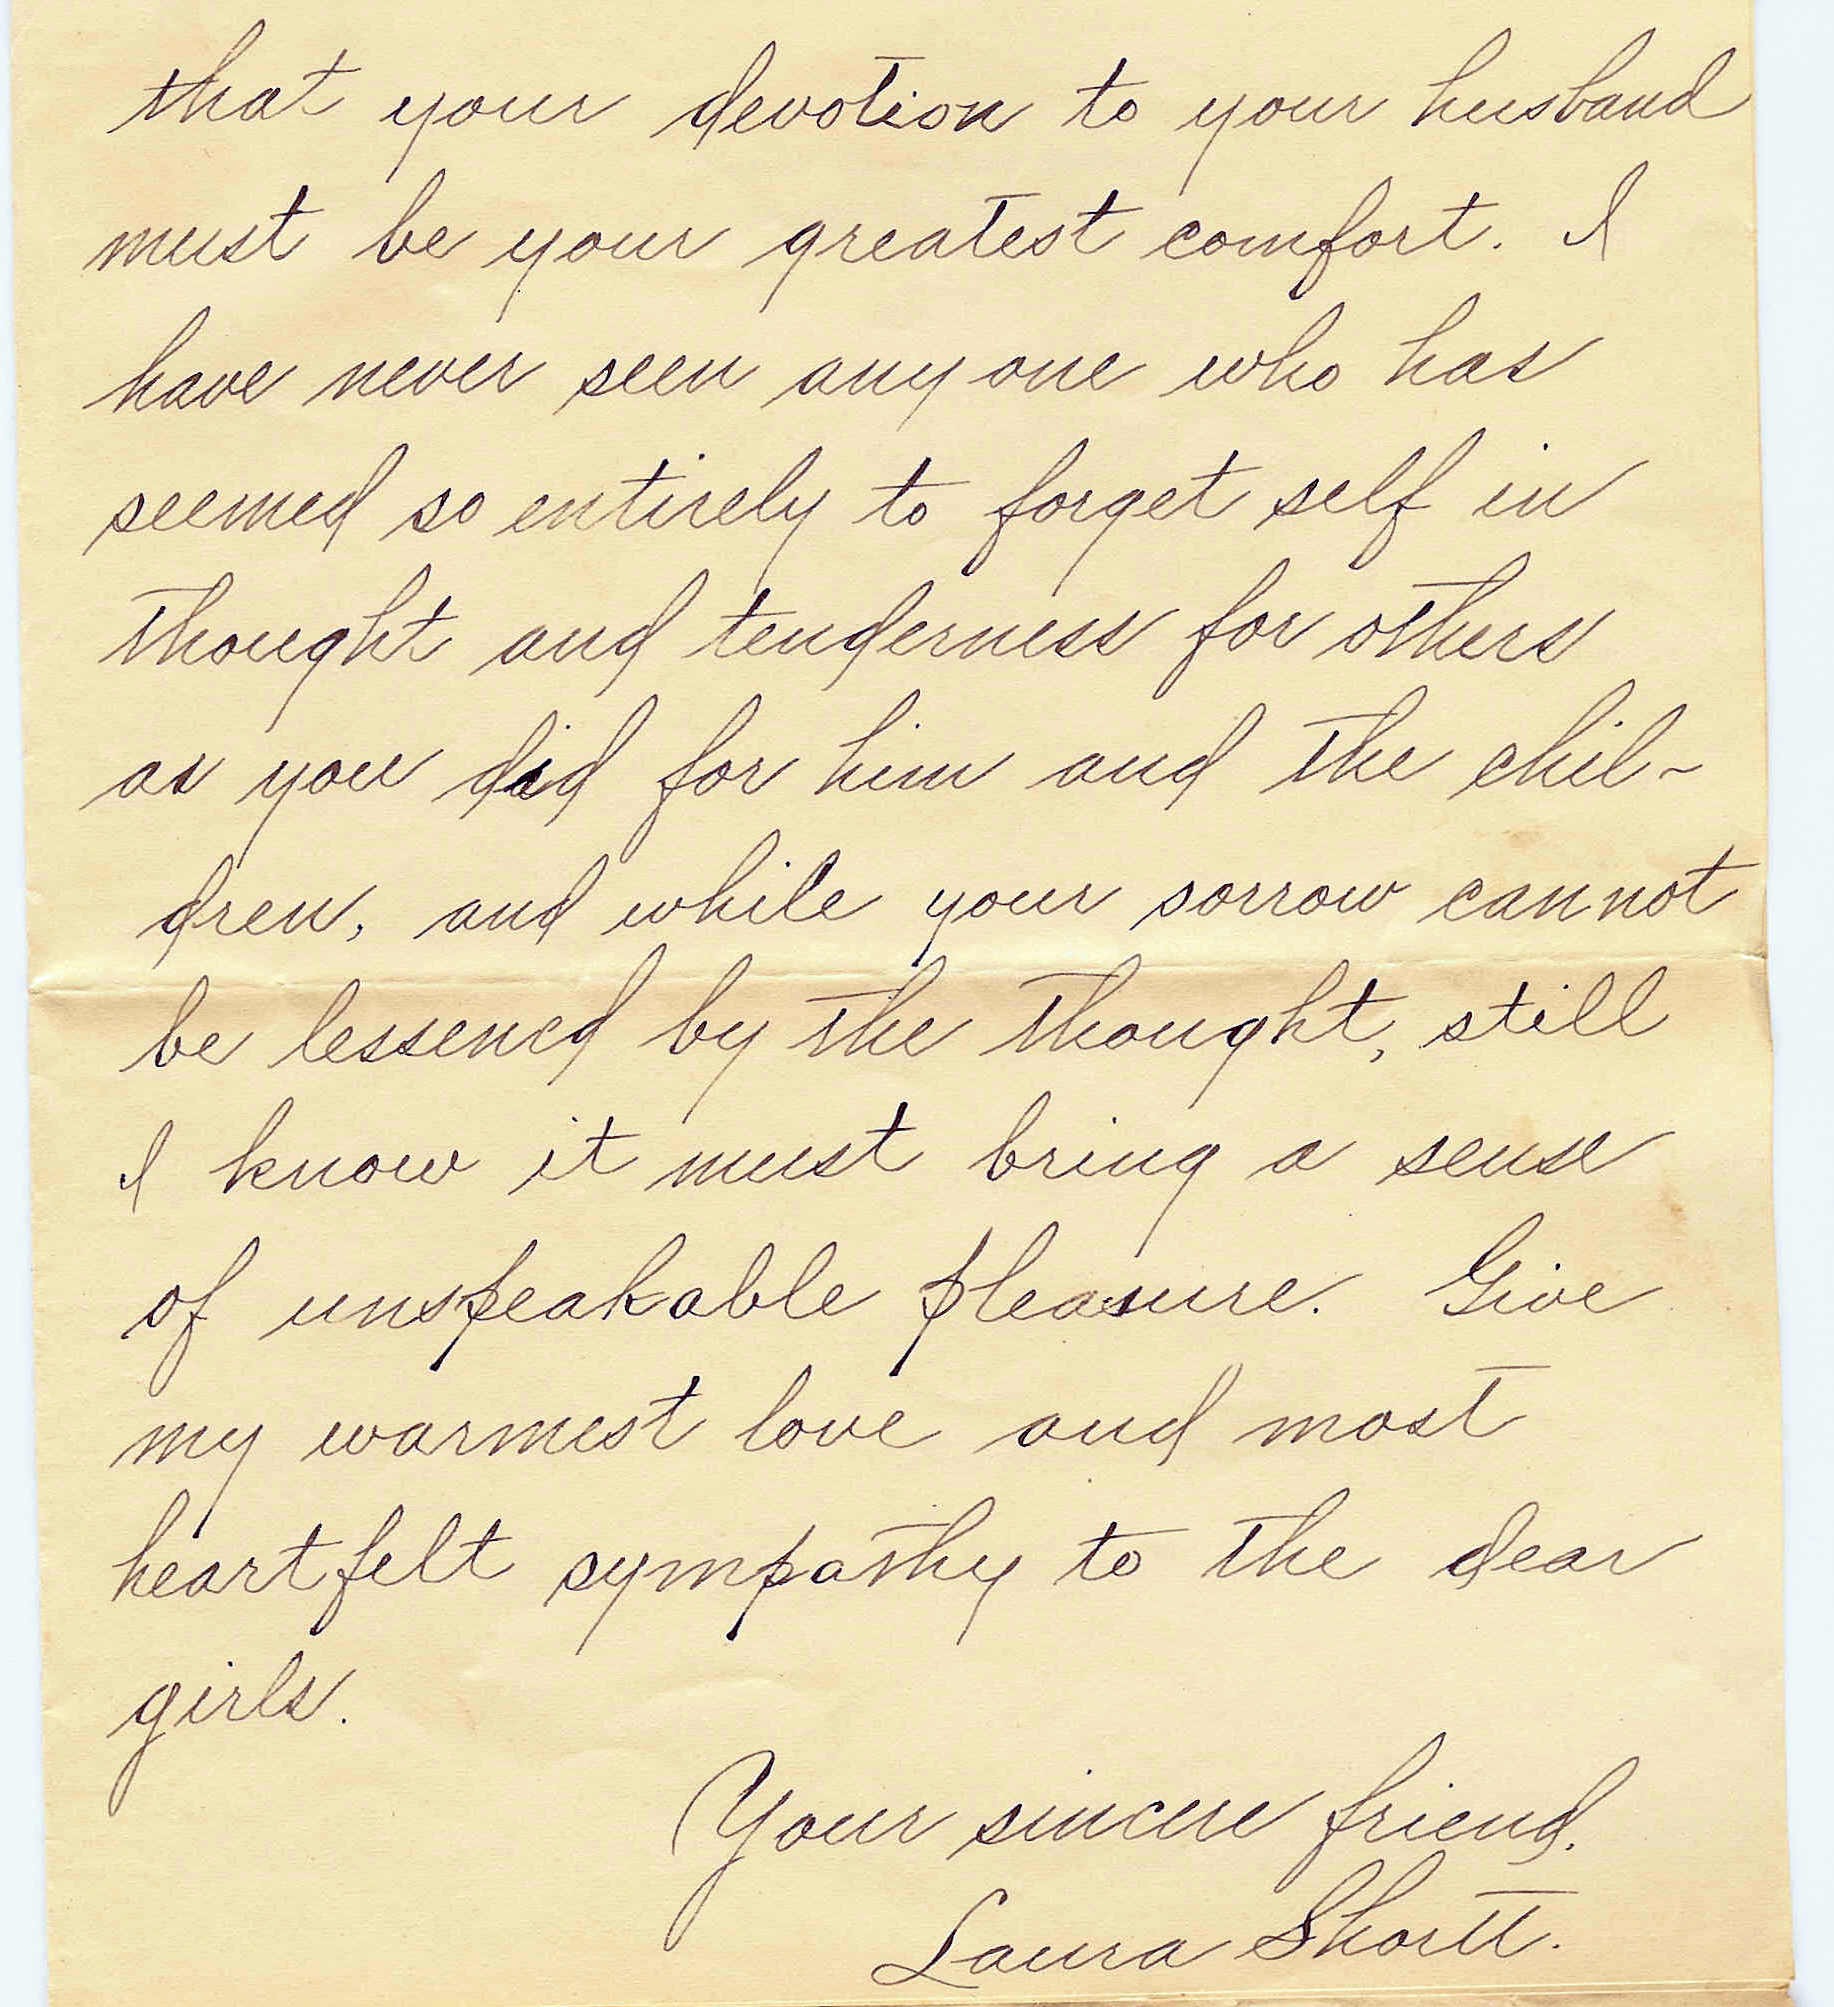 that your devotion to your husband
must be your greatest comfort. I
have never seen any one who has
seemed so entirely to forget self in
thought and tenderness for others
as you did for him and the chil-
dren, and while your sorrow cannot
be lessened by the thought, still
I know it must bring a sense
of unspeakable pleasure. Give
my warmest love and most
heartfelt sympathy to the dear
girls.
Your sincere friend,
Laura Shortt.